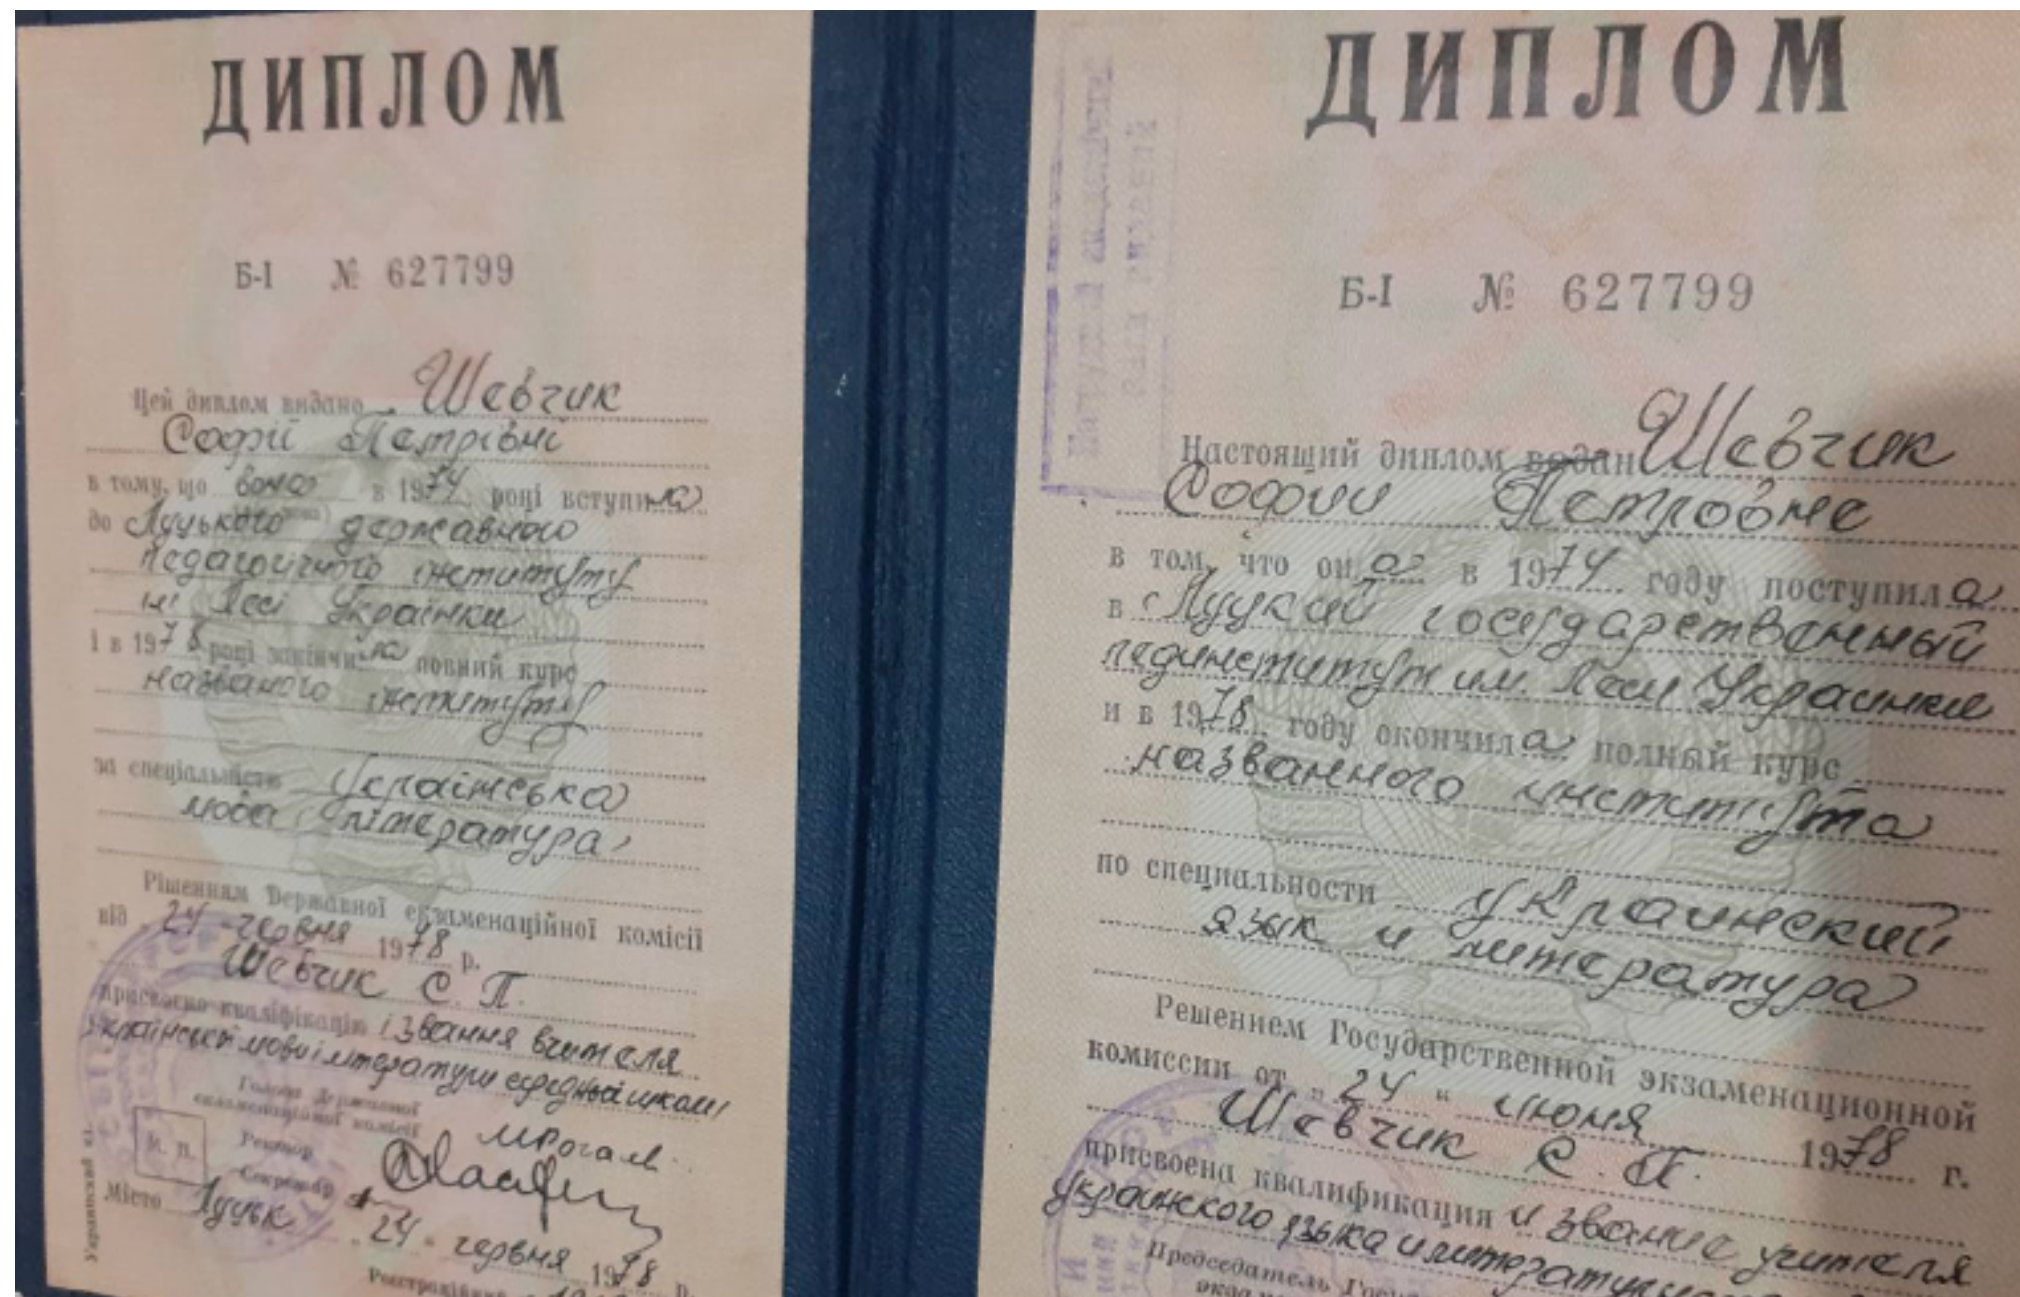 ДИПЛОМ
Б-І № 627799
Цей диплом видано Шевчик
Софії Петрівні
в тому, що вона в 1974 році вступила
до Луцького державного
педагогічного інституту
ім Лесі Українки
і в 1978 році закінчила повний курс
названого інституту
за спеціальністю українська
мова література
Рішенням Державної екзаменаційної комісії
від 24 червня 1978 р.
Шевчик С. П.
присвоєно кваліфікацію і звання вчителя
української мови і літератури середньої школи
Голова Державної
екзаменаційної комісії
Ректор
Секретар
К. П.
Місто Луцьк 24 червня 1978 р.
Реєстраційний
Украинский яз.
ДИПЛОМ
Б-І № 627799
Настоящий диплом водан Шевчик
Софии Петровне
в том, что она в 1974 году поступила
в Луцкий государственный
пединститут им. Леси Украинки
и в 1978 году окончила полный курс
названного института
по специальности украинский
язык и литература
Решением Государственной экзаменационной
комиссии от „24" июня 1978 г.
Шевчик С. П.
присвоена квалификация и звание учителя
украинского языка и литературы
Председатель